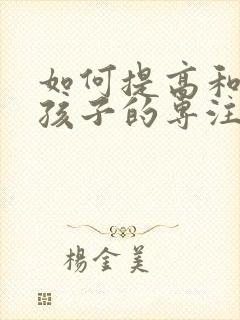 如何提高和
孩子的专注
杨金美